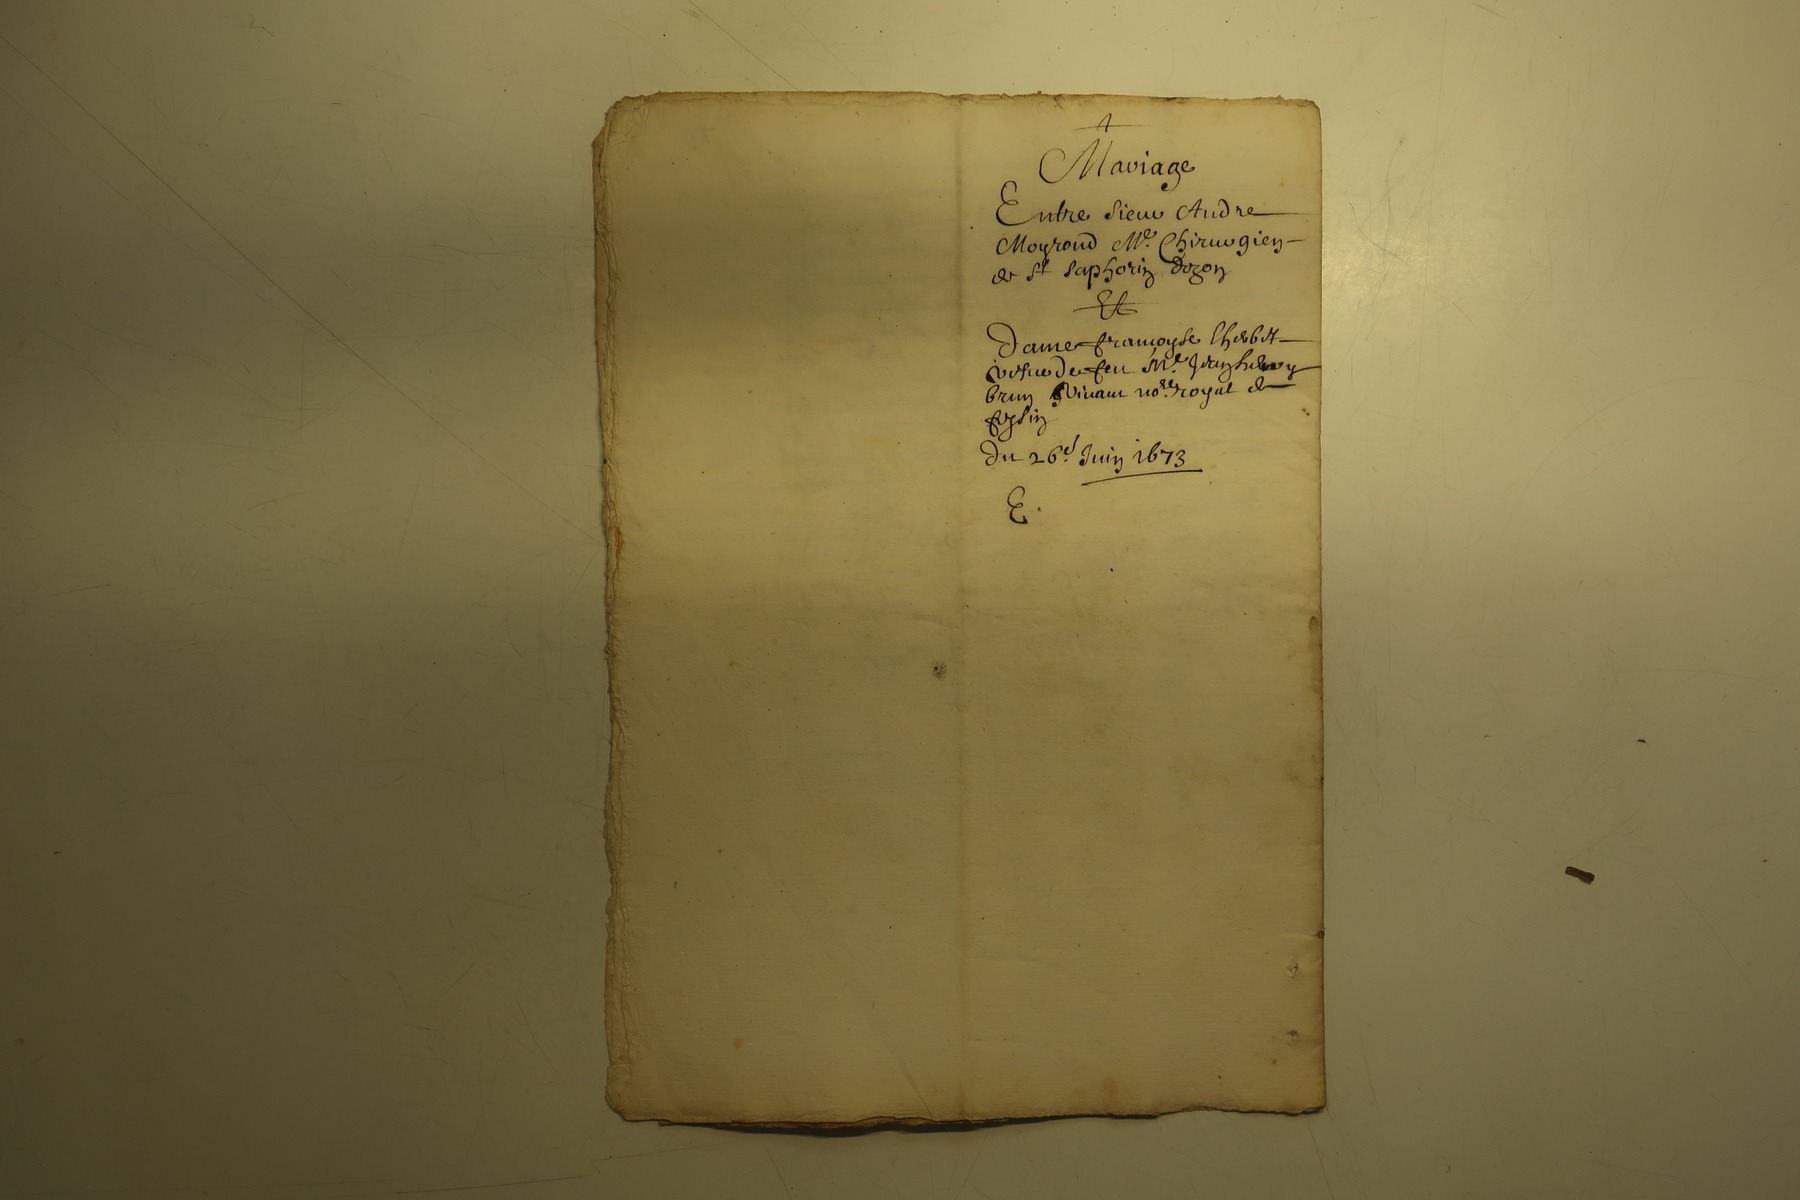 Mariage
Entre sieur Andre
Moyroud Me. Chirurgien
de St saphorin dozon
Et
Dame francoyse
vefue de feu Me.
brun viuant nore. royal de
feysin
Du 26e Juin 1673
E.